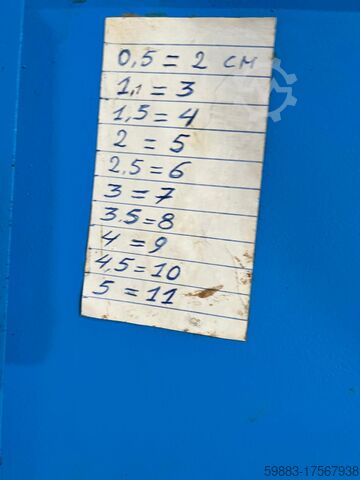 0,5 = 2 см
1,1 = 3
1,5 = 4
2 = 5
2,5 = 6
3 = 7
3.5 = 8
4 = 9
4,5 = 10
5 = 11
59883-17567938